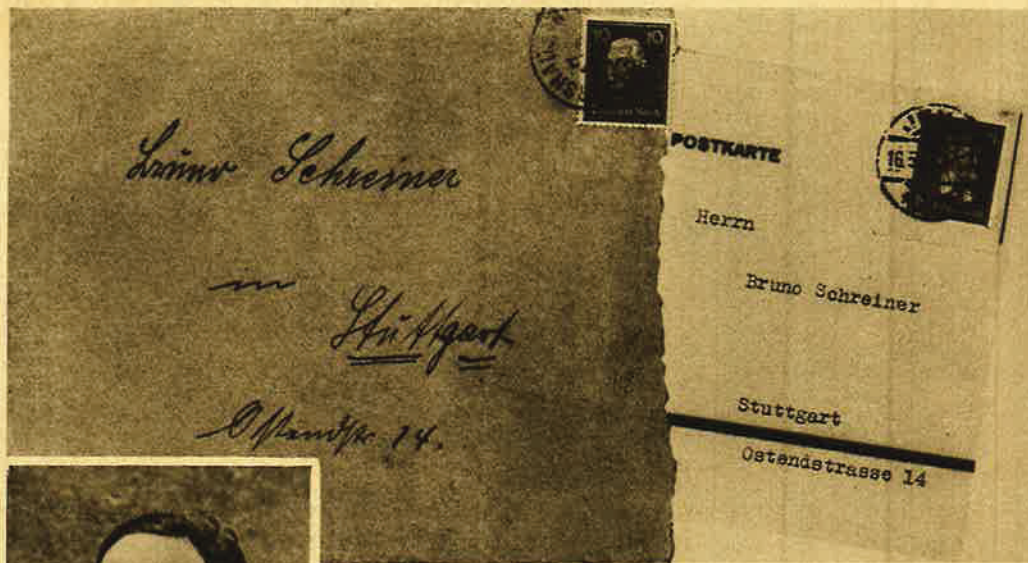 Bruno Schreiner
in
Stuttgart
Ostendstr. 14.
10 10
POSTKARTE
16
Herrn
Bruno Schreiner
Stuttgart
Ostendstrasse 14